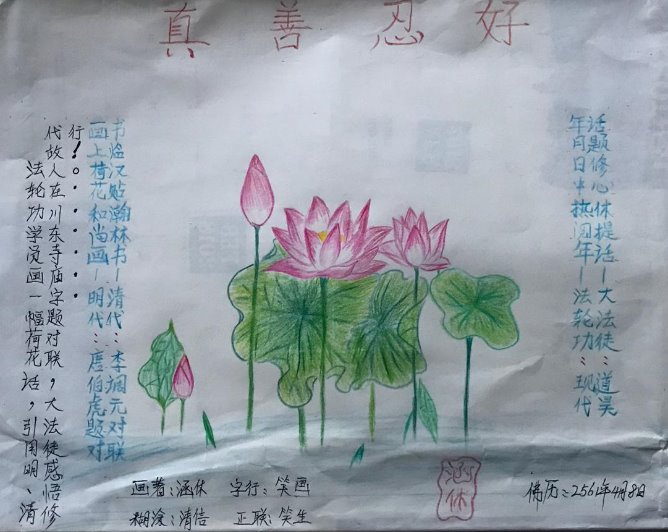 真善忍好
话题修心休提话—大法徒：道昊
年月日中热闰年—法轮功：现代
书临汉贴翰林书—清代：李调元对联
画上荷花和尚画—明代：唐伯虎题对
法轮功学员画一幅荷花话，引用明、清
代故人在川东寺庙字题对联，大法徒感悟修
行！。......
画着：涵休 字行：笑画
糊涂：清信 正联：笑生
涵休
佛历：2561年4月8日